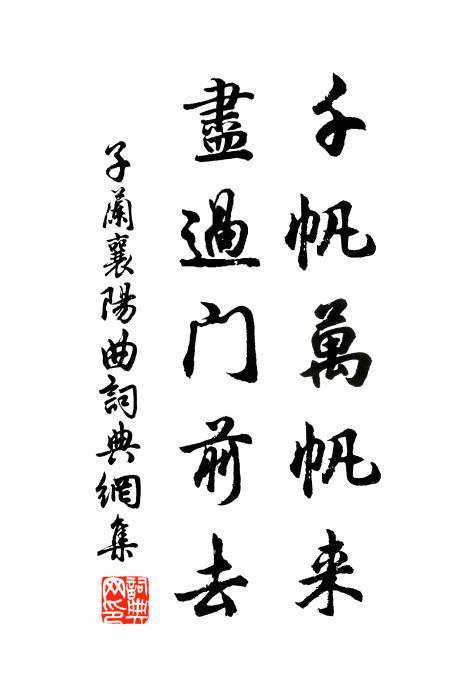 千帆萬帆来
盡過门前去
子蘭襄陽曲詞典網集
詞典網印